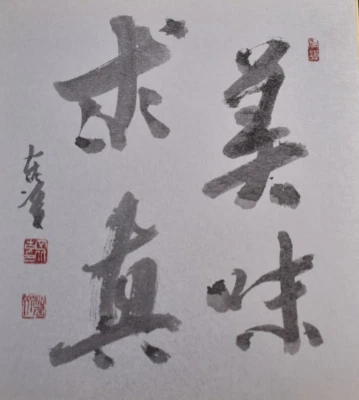 美味
求真